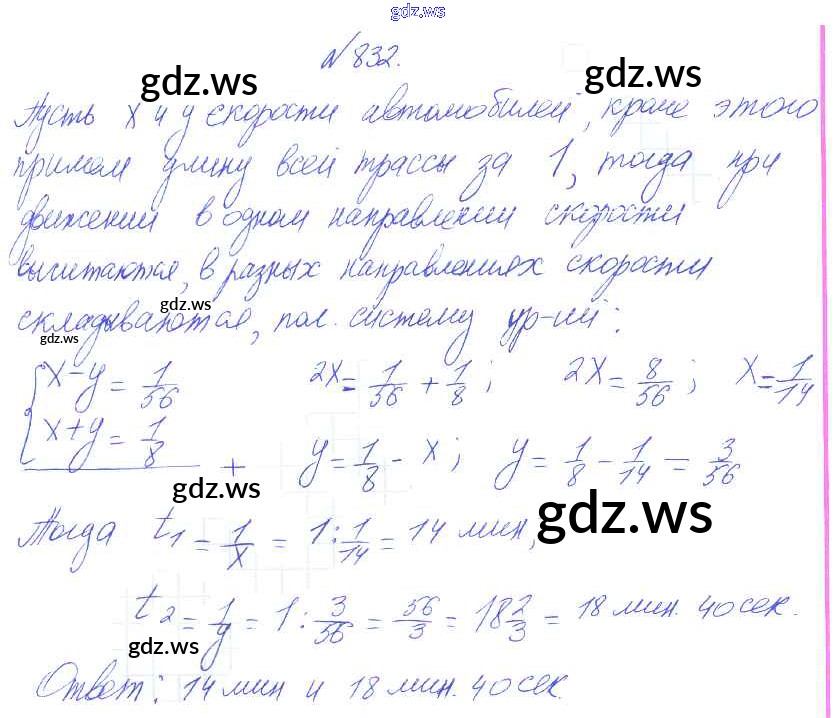 gdz.ws
№832.
gdz.ws gdz.ws
Пусть x и y скорости автомобилей, кроме этого
примем длину всей трассы за 1, тогда при
движении в одном направлении скорости
вычитаются, в разных направлениях скорости
gdz.ws
складываются, пол. систему ур-ий:
gdz.ws
x-y = 1/56 2x = 1/56 + 1/8; 2x = 8/56; x = 1/14
x+y = 1/8 + y = 1/8 - x; y = 1/8 - 1/14 = 3/56
gdz.ws gdz.ws
Тогда t1 = 1/x = 1 : 1/14 = 14 мин,
t2 = 1/y = 1 : 3/56 = 56/3 = 18 2/3 = 18 мин. 40 сек.
gdz.ws
Ответ: 14 мин и 18 мин. 40 сек.